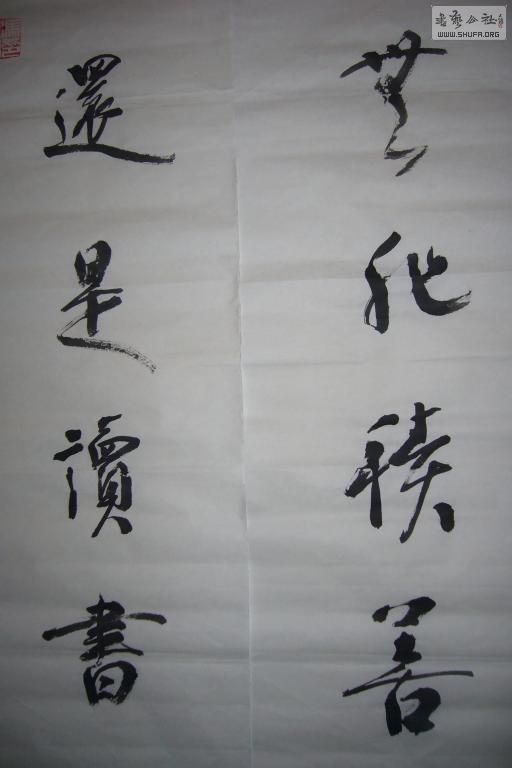 無非積善
還是讀書
書藝公社
WWW.SHUFA.ORG